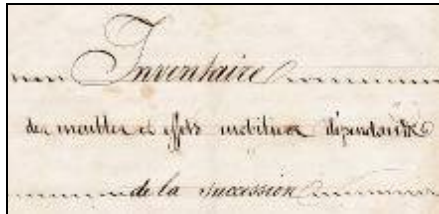 Inventaire
des meubles et effets mobiliers dépendants
de la succession